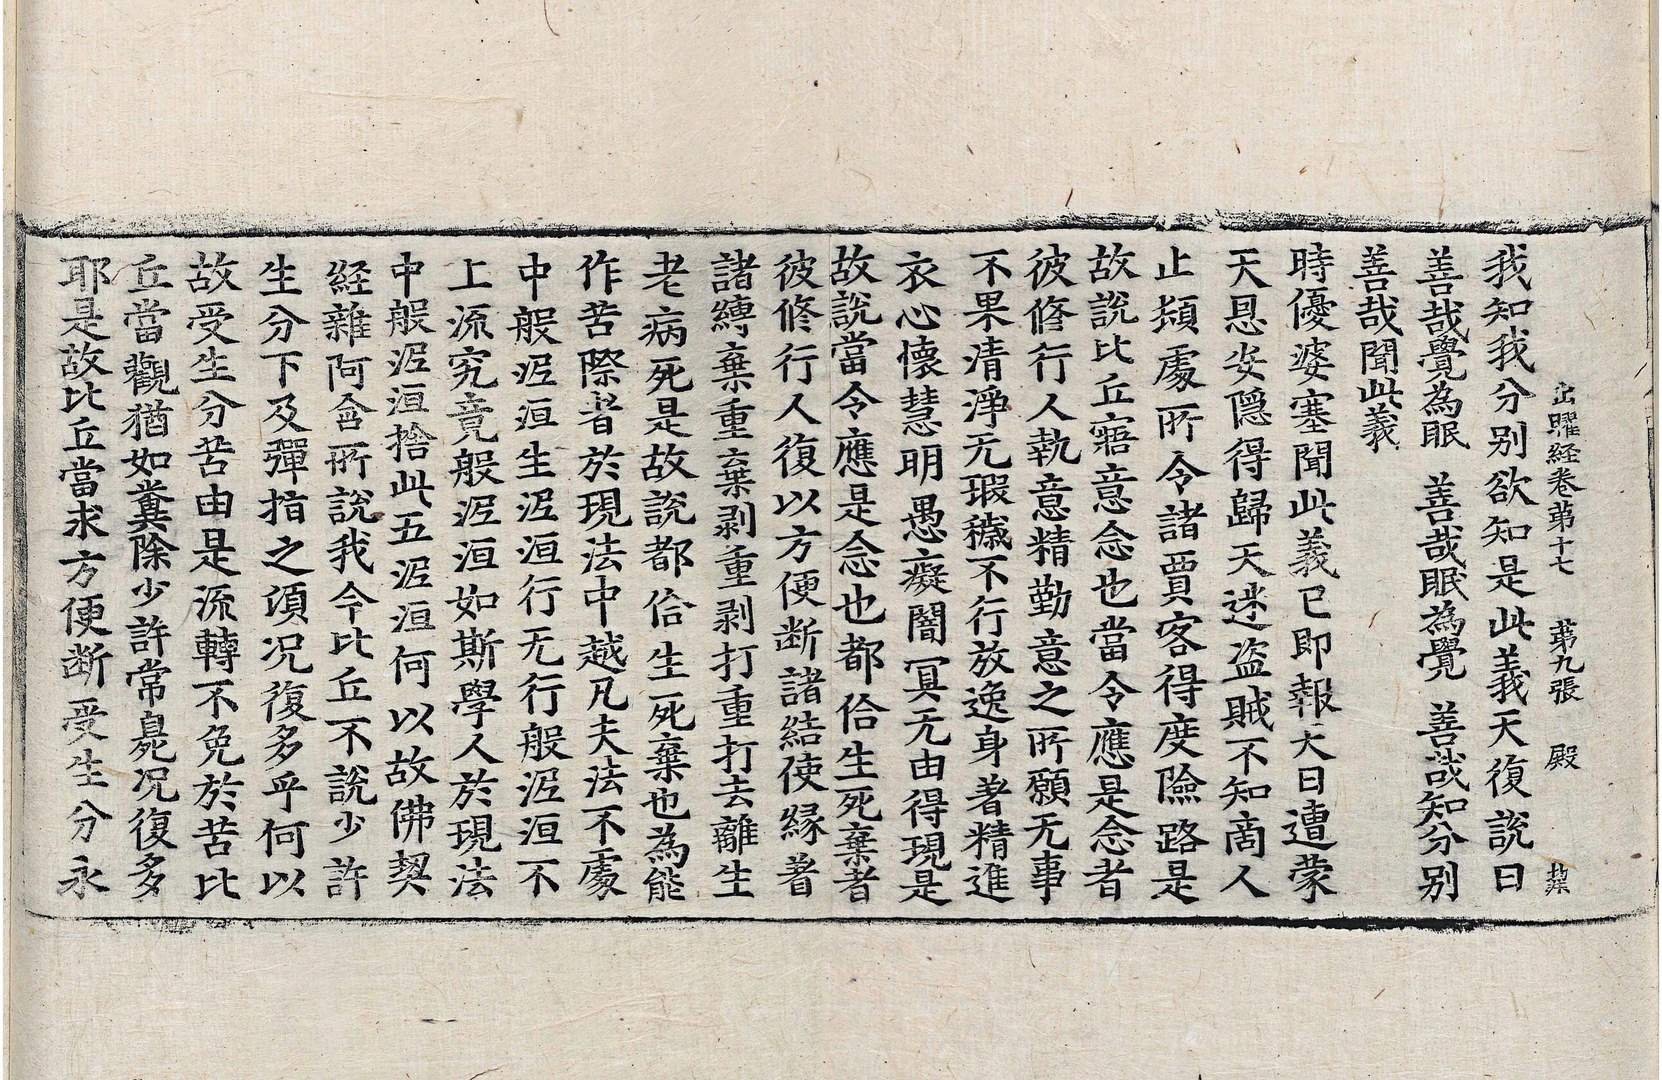 出曜経卷苐十七 苐九張 殿
我知我分別欲知是此義天復說曰
善哉覺為眠 善哉眠為覺 善哉知分別
善哉聞此義
時優婆塞聞此義已即報大曰遭蒙
天恩安隱得歸天迷盜賊不知啇人
止頓處所令諸賈客得度險路是
故說比丘寤意念也當令應是念者
彼脩行人執意精勤意之所願无事
不果清淨无瑕穢不行放逸身著精進
衣心懷慧明愚癡闇冥无由得現是
故說當令應是念也都佮生死棄者
彼脩行人復以方便断諸結使縁著
諸縛棄重棄剥重剥打重打去離生
老病死是故說都佮生死棄也為能
作苦際者於現法中越凡夫法不處
中般泥洹生泥洹行无行般泥洹不
上流究竟般泥洹如斯學人於現法
中般泥洹捨此五泥洹何以故佛契
経雜阿含所說我今比丘不說少許
生分下及彈指之頃况復多乎何以
故受生分苦由是流轉不免於苦比
丘當觀猶如糞除少許常臭况復多
耶是故比丘當求方便断受生分永